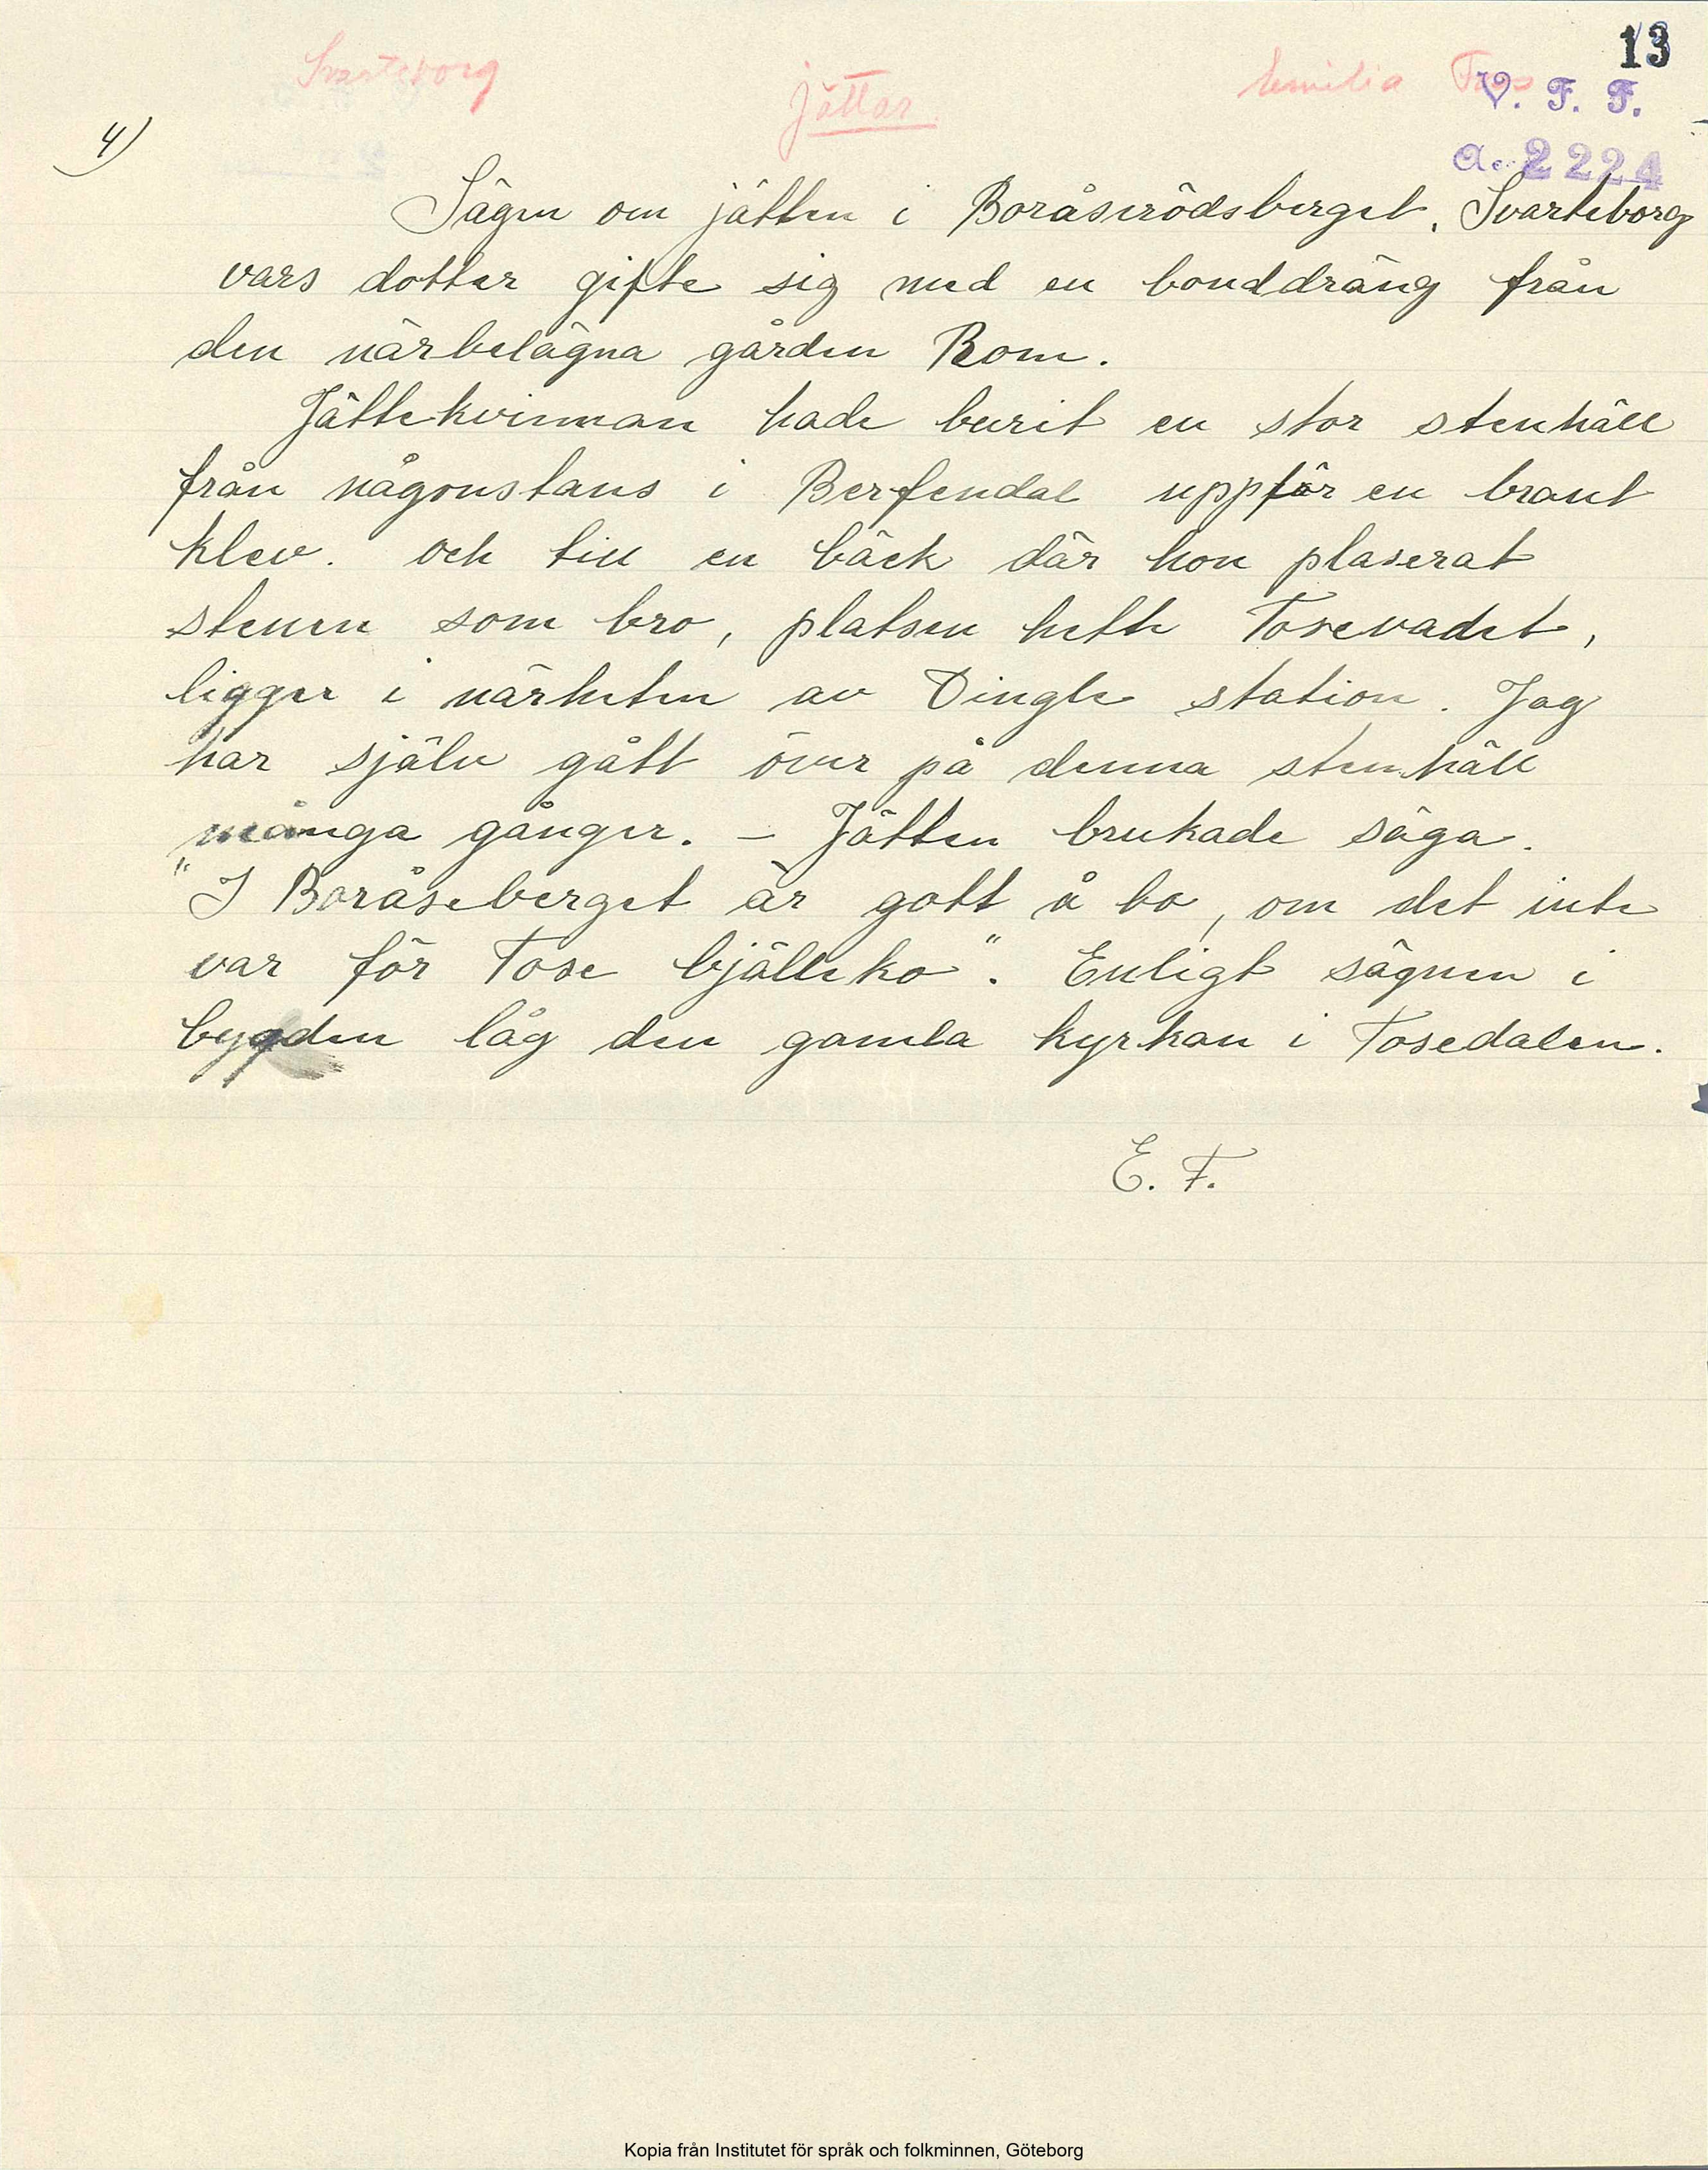 13
Svarteborg
Jättar
Emilia
V. F. F.
A. 2224
4)
Sägen om jätten i Boråserödsberget, Svarteborg
vars dotter gifte sig med en bonddräng från
den närbelägna gården Rom.
Jättekvinnan hade burit en stor stenhäll
från någonstans i Berfendal uppför en brant
klev. och till en bäck där hon plaserat
stenen som bro, platsen hette Tosevadet,
ligger i närheten av Dingle station. Jag
har själv gått över på denna stenhäll
många gånger. – Jätten brukade säga.
"I Boråseberget är gott å bo, om det inte
var för Tose bjälleko". Enligt sägnen i
bygden låg den gamla kyrkan i Tosedalen.
E. F.
Kopia från Institutet för språk och folkminnen, Göteborg